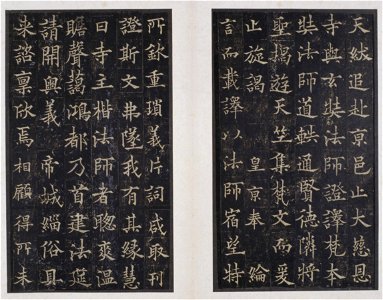 天綍追赴京邑止大慈恩
寺與玄奘法師證譯梵本
奘法師道軼通賢德鄰將
聖揭遊天竺集梵文而爰
止旋謁 皇京奉 綸
言而載譯以法師宿望特
所欽重瑣義片詞咸取刊
證斯文弗墜我有其緣慧
日寺主楷法師者聰爽溫
贍聲藹鴻都乃首建法筵
請開奧義 帝城緇俗具
來諮稟欣焉相顧得所未